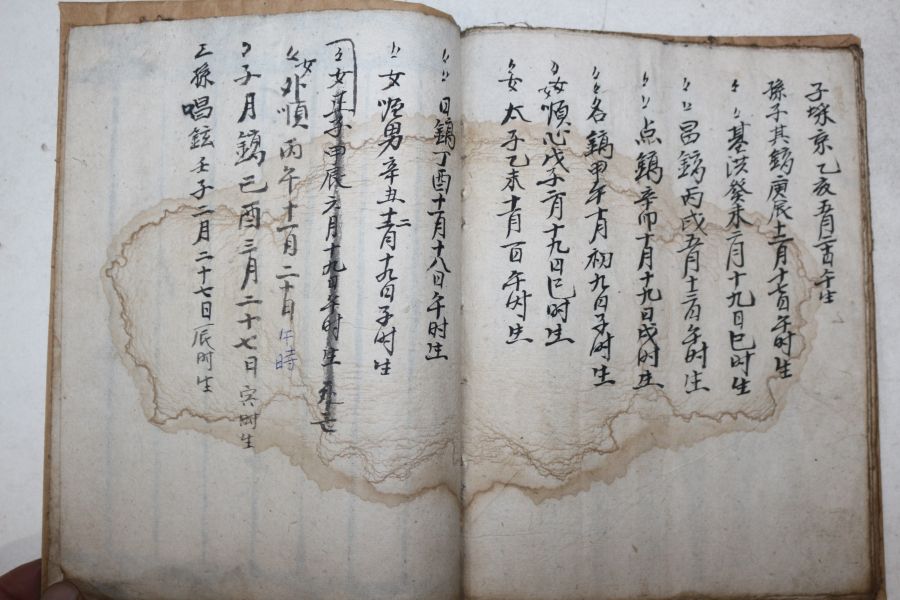 子埰京乙亥五月一百午生
孫子其鎬庚辰十二月十七日午時生
〻〻基洪癸未二月十九日巳时生
〻〻昌鎬丙戌五月十二日午时生
〻〻点鎬辛卯十月十九日戌时生
〻〻名鎬甲午十月初九日子时生
〻女順心戊子二月十九日巳时生
〻女太子乙未十月百午时生
〻〻日鎬丁酉十一月十八日午时生
〻〻女順男辛丑十二月十九日子时生
〻〻女子甲辰六月十九日午时生死亡
〻女外順丙午十一月二十日午時
〻子月鎬己酉三月二十七日寅时生
三孫唱鉉壬子二月二十七日辰时生